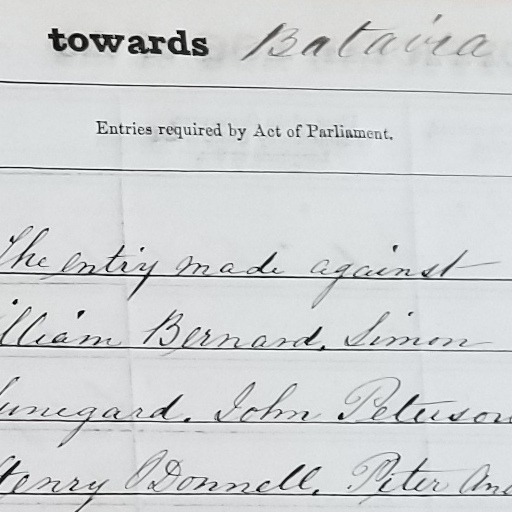 towards Batavia
Entries required by Act of Parliament.
The entry made against
illiam Bernard. Simon
unegard. John Peterson
Henry O'Donnell. Peter And